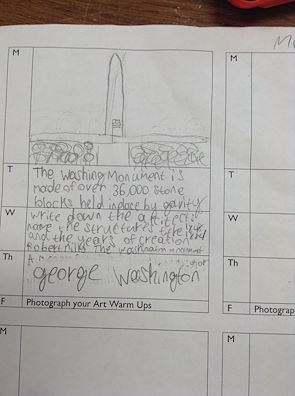 M
T
The Washing Monument is
made of over 36,000 stone
blocks held in place by garity
W
write down the
name the structures
and the years of creation
Robert Mills The Washington
Th
george Washington
F Photograph your Art Warm Ups
M
M
T
W
Th
F Photograp
M
M